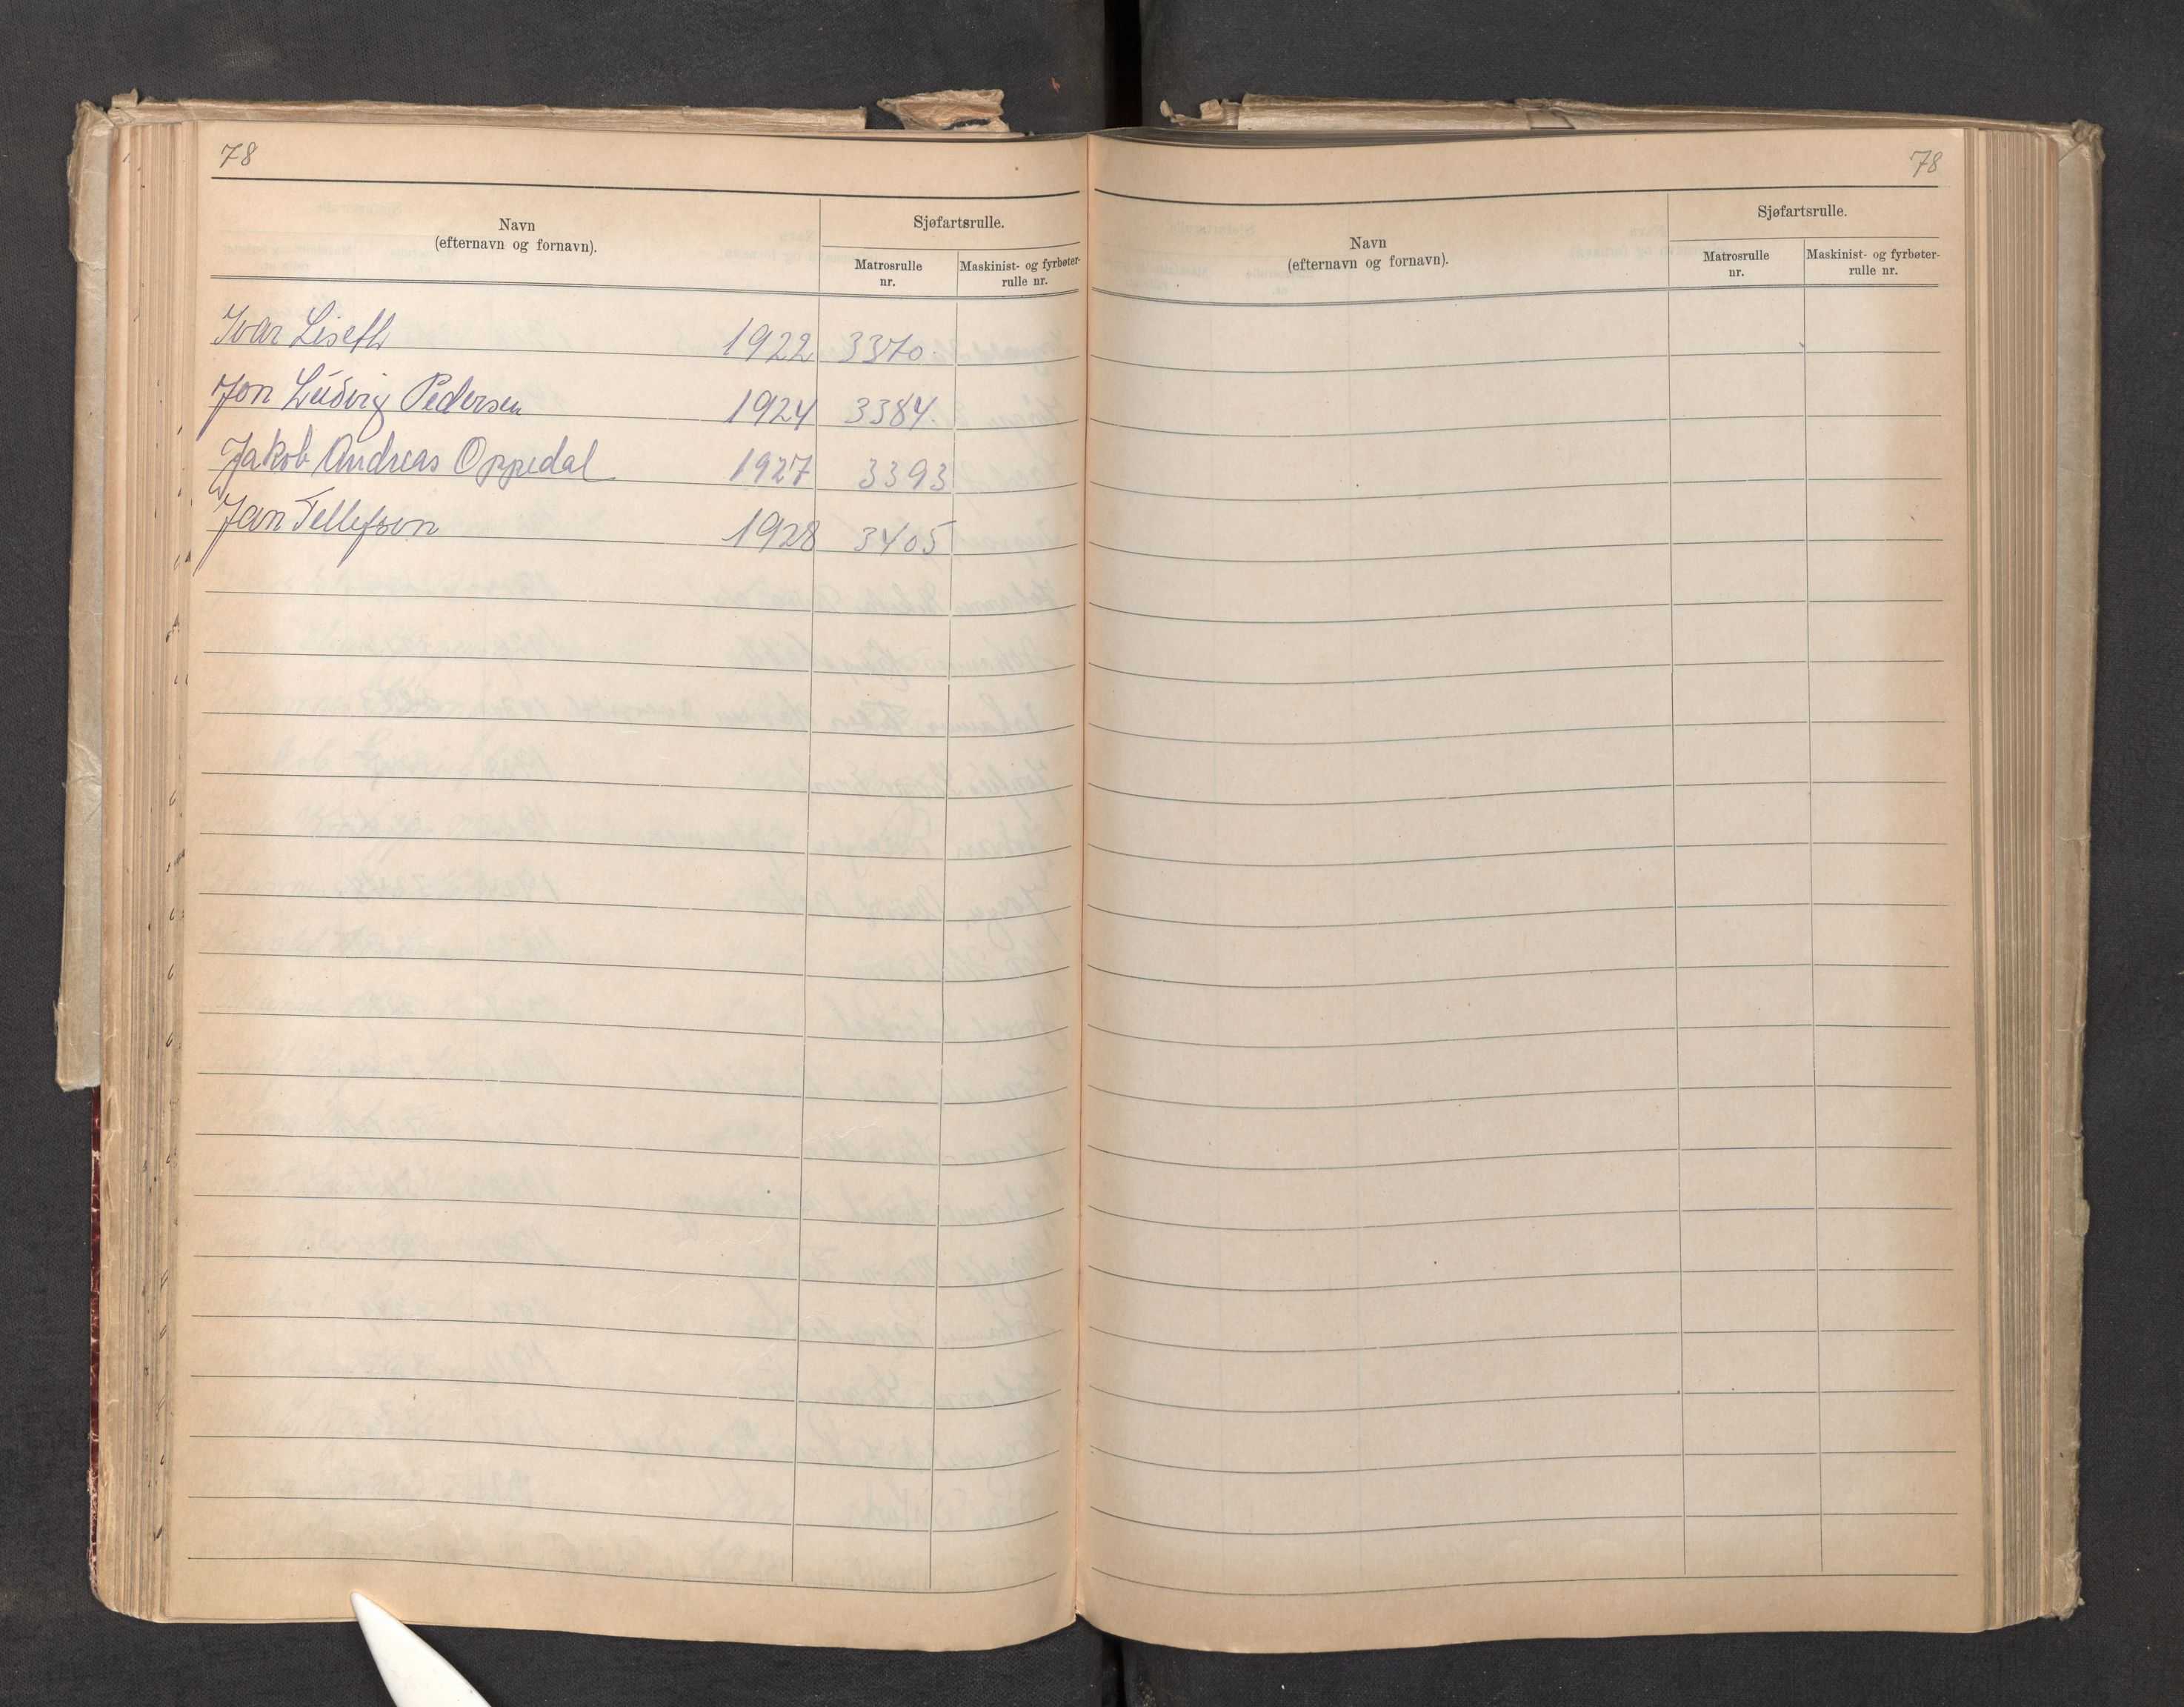 78
Navn
(efternavn og fornavn).
Sjøfartsrulle.
Matrosrulle
nr.
Maskinist- og fyrbøter-
rulle nr.
Ivar Liseth 1922 3370.
Jon Ludvig Pedersen 1924 3384.
Jakob Andreas Oppedal 1927 3393
Jan Tellefsen 1928 3405
78
Navn
(efternavn og fornavn).
Sjøfartsrulle.
Matrosrulle
nr.
Maskinist- og fyrbøter-
rulle nr.